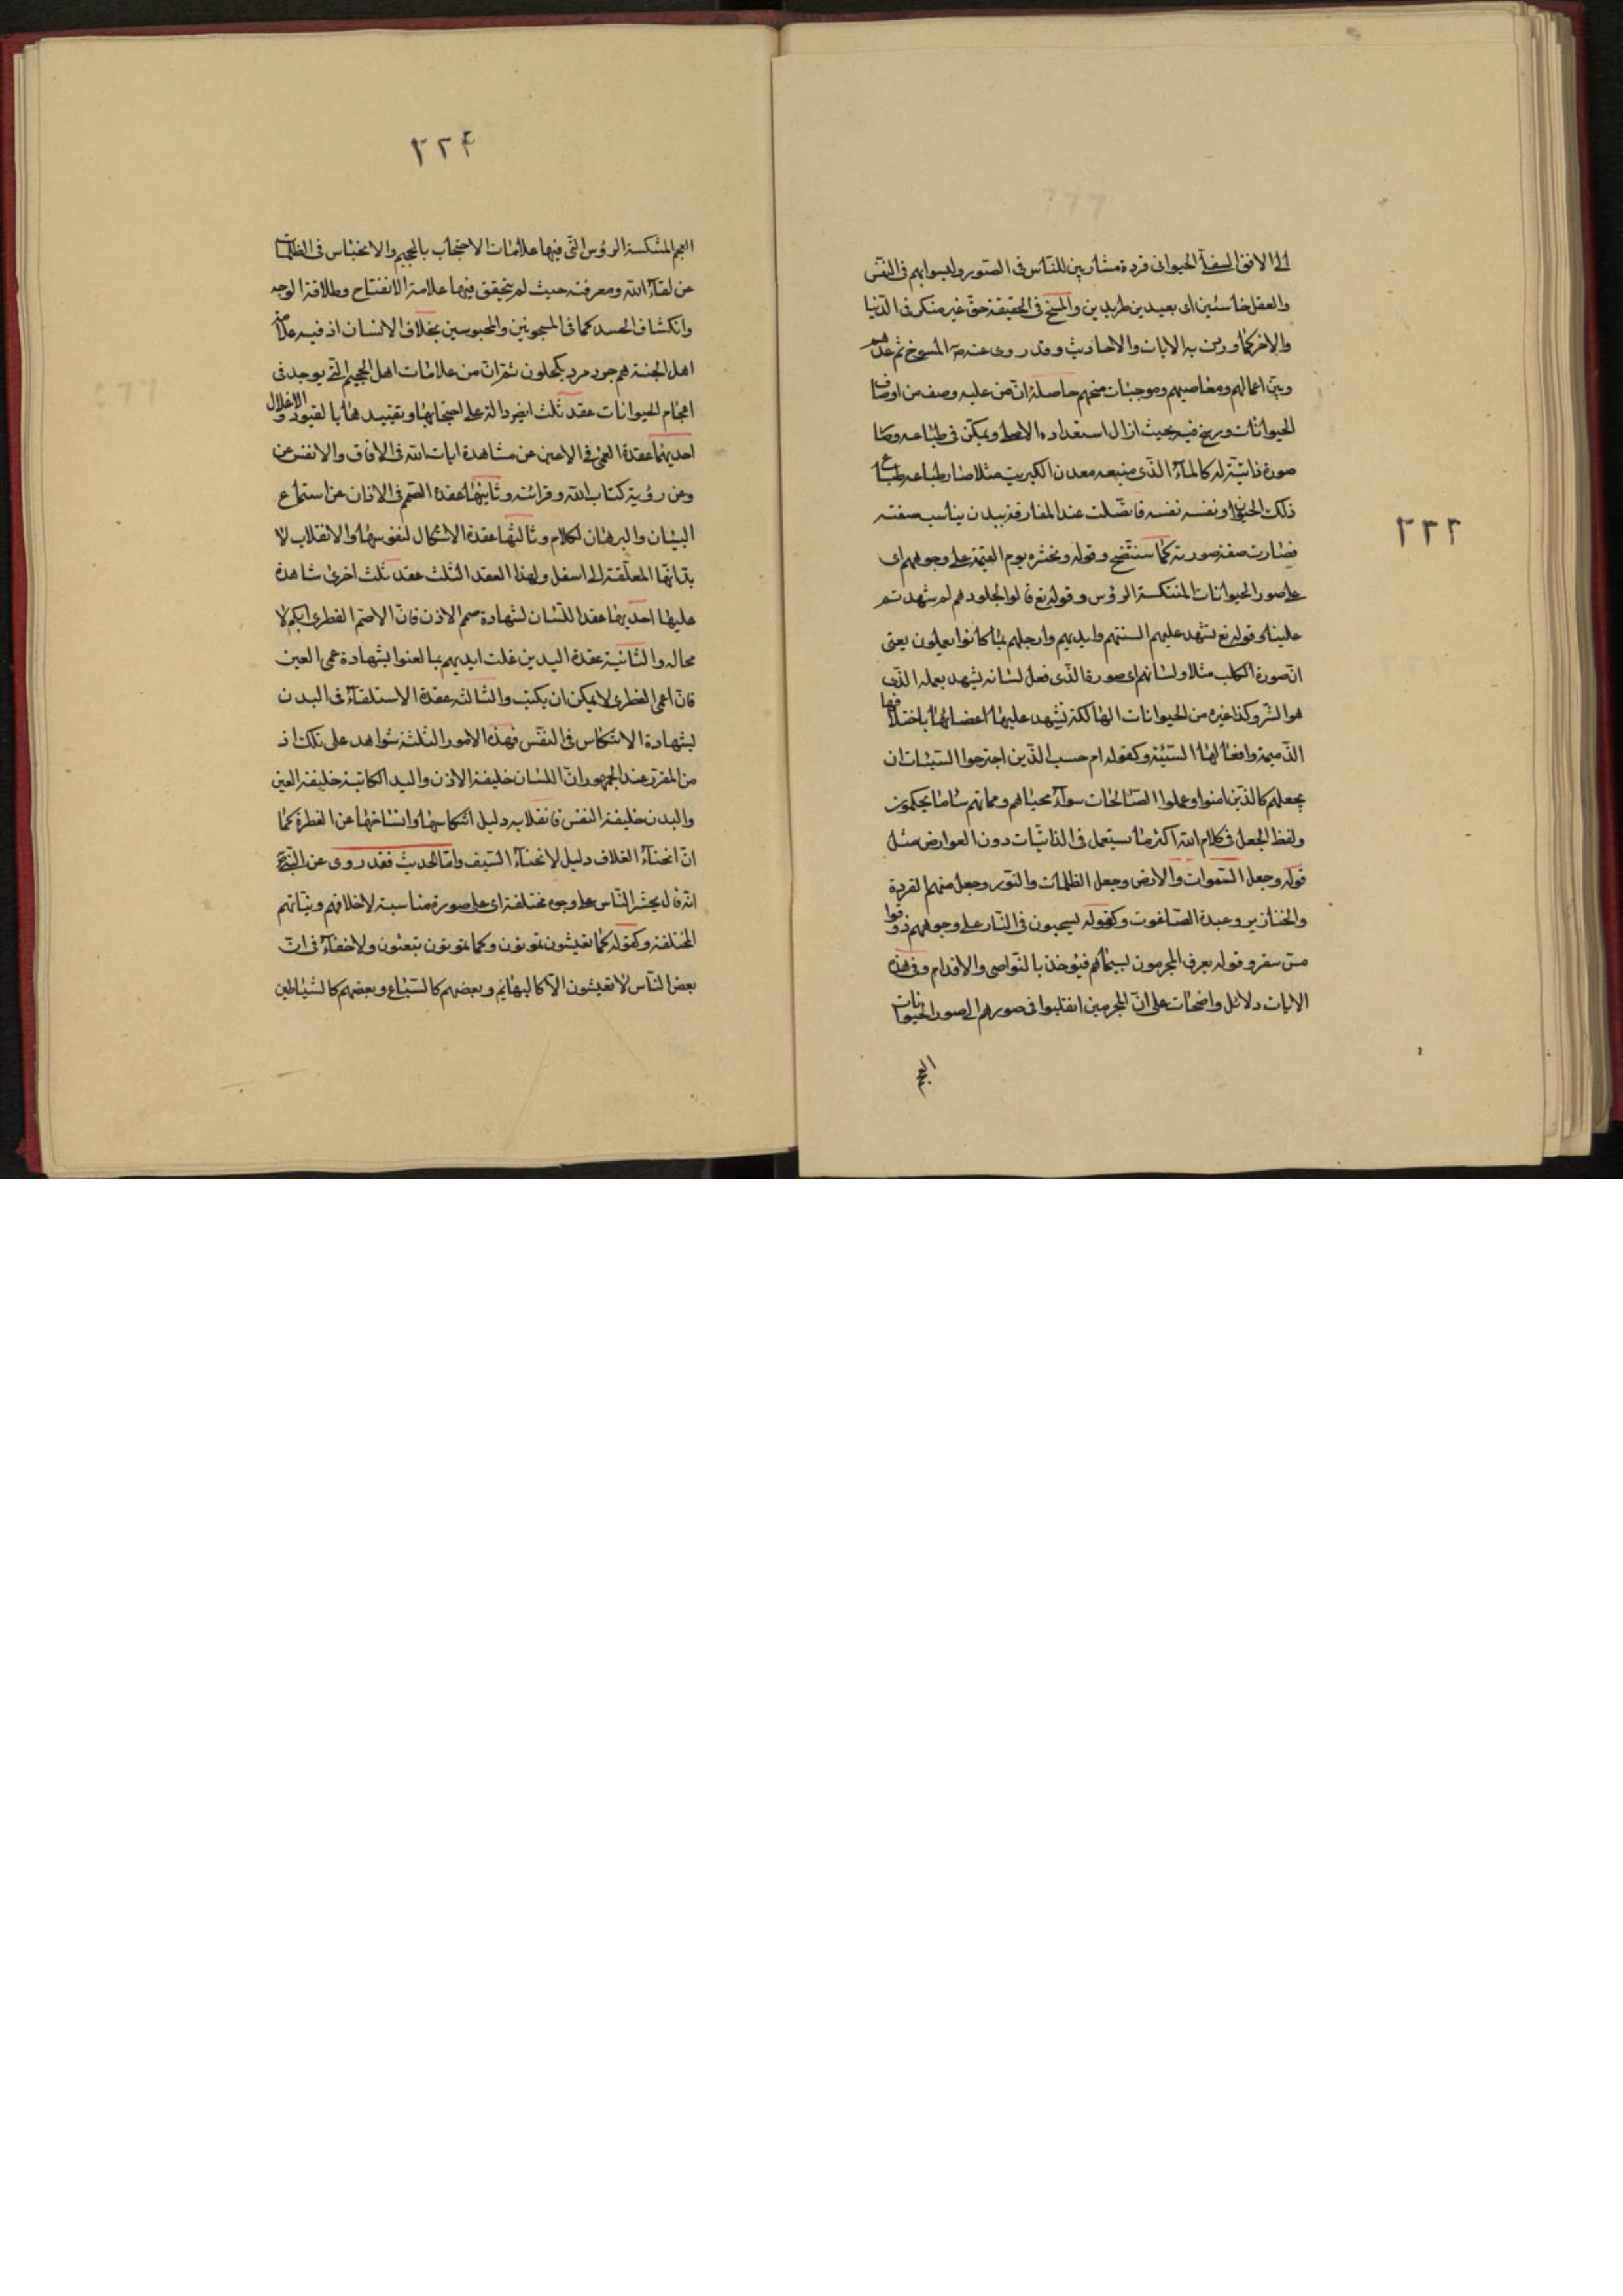 الى الافق السفلى الحيوانى قردة مشاربين للناس فى الصور وليسوا بهم فى النفس
والعقل خاسئين اى بعيدين طريدين والمسخ فى الحقيقة حق غير منكر فى الدنيا
والاخرة كما وردت به الايات والاحاديث وقد روى عنه ص المسوخ ثم عدهم
وبين اعمالهم ومعاصيهم وموجبات مسخهم حاصله ان من عليه وصف من اوصاف
الحيوانات ورسخ فيه بحيث ازال استعداده الاصلى وتمكن فى طباعه وصار
صورة ذاتية له كالماء الذى منبعه معدن الكبريت مثلا صار طباعه طباع
ذلك الحيوان ونفسه نفسه فاتصلت عند المفارقة ببدن يناسب صفته
فصارت صفته صورته كما سنتضح وقوله ونحشره يوم القيمة على وجوههم اى
على صور الحيوانات المنتكسة الرؤس وقوله تع قالوا لجلودهم لم شهدتم
علينا وقوله تع تشهد عليهم السنتهم وايديهم وارجلهم بما كانوا يعملون يعنى
ان صورة الكلب مثلا ولسانهم اى صورة الذى فعل لسانه يشهد بعمله الذى
هو الشر وكذا غيره من الحيوانات الهالكة تشهد عليها اعضائها باخلاقها
الذميمة وافعالها السيئة وكقوله ام حسب الذين اجترحوا السيئات ان
نجعلهم كالذين امنوا وعملوا الصالحات سواء محياهم ومماتهم ساء ما يحكمون
ولفظ الجعل فى كلام الله اكثر ما يستعمل فى الذاتيات دون العوارض مثل
قوله وجعل السموات والارض وجعل الظلمات والنور وجعل منهم القردة
والخنازير وعبدة الطاغوت وكقوله يسحبون فى النار على وجوههم ذوقوا
مس سقر وقوله يعرف المجرمون بسيماهم فيؤخذ بالنواصى والاقدام وفى هذه
الايات دلائل واضحات على ان المجرمين انقلبوا فى صورهم الى صور الحيوانات
العجم
٢٢٣
٢٢۴
العجم المنتكسة الرؤس التى فيها علامات الاحتجاب بالجحيم والانحباس فى الظلمات
عن لقاء الله ومعرفته حيث لم يتحقق فيها علامة الانفتاح وطلاقة الوجه
وانكشاف الجسد كما فى المسجونين والمحبوسين بخلاف الانسان اذ فيه علامة
اهل الجنة هم جرد مرد يكحلون ثم ان من علامات اهل الجحيم التى يوجد فى
اعجام الحيوانات عقد ثلث ايضا دالة على احتجابها وتقييدها بالقيود والاغلال
احديها عقدة العمى فى الاعين عن مشاهدة ايات الله فى الافاق والانفس عن
وعن رؤية كتاب الله وقرائته وثانيها عقدة الصمم فى الاذان عن استماع
البيان والبرهان لكلام وثالثها عقدة الاشكال لنفوسها والانقلاب لا
بدانها المعلقة الى اسفل ولهذا العقد الثلث عقد ثلث اخرى شاهدة
عليها احديها عقد اللسان لشهادة صمم الاذن فان الاصم الفطرى ابكم لا
محاله والثانية عقدة اليدين غلت ايديهم بما لعنوا بشهادة عمى العين
فان اعمى الفطرى لا يمكن ان يكتب والثالثة عقدة الاستلقاء فى البدن
لشهادة الانتكاس فى النفس فهذه الامور الثلثة شواهد على تلك اذ
من المقرر عند الجمهور ان اللسان خليفة الاذن واليد الكاتبة خليفة العين
والبدن خليفة النفس فانقلابه دليل انتكاسها وانسلاخها عن الفطرة كما
ان انحناء الغلاف دليل لانحناء السيف واما الحديث فقد روى عن النبى ص
انه قال يحشر الناس على وجوه مختلفة اى على صورة مناسبة لاخلاقهم ونياتهم
المختلفة وكقوله كما تعيشون تموتون وكما تموتون تبعثون ولا خفاء فى ان
بعض الناس لا تعيشون الا كالبهائم وبعضهم كالسباع وبعضهم كالشياطين